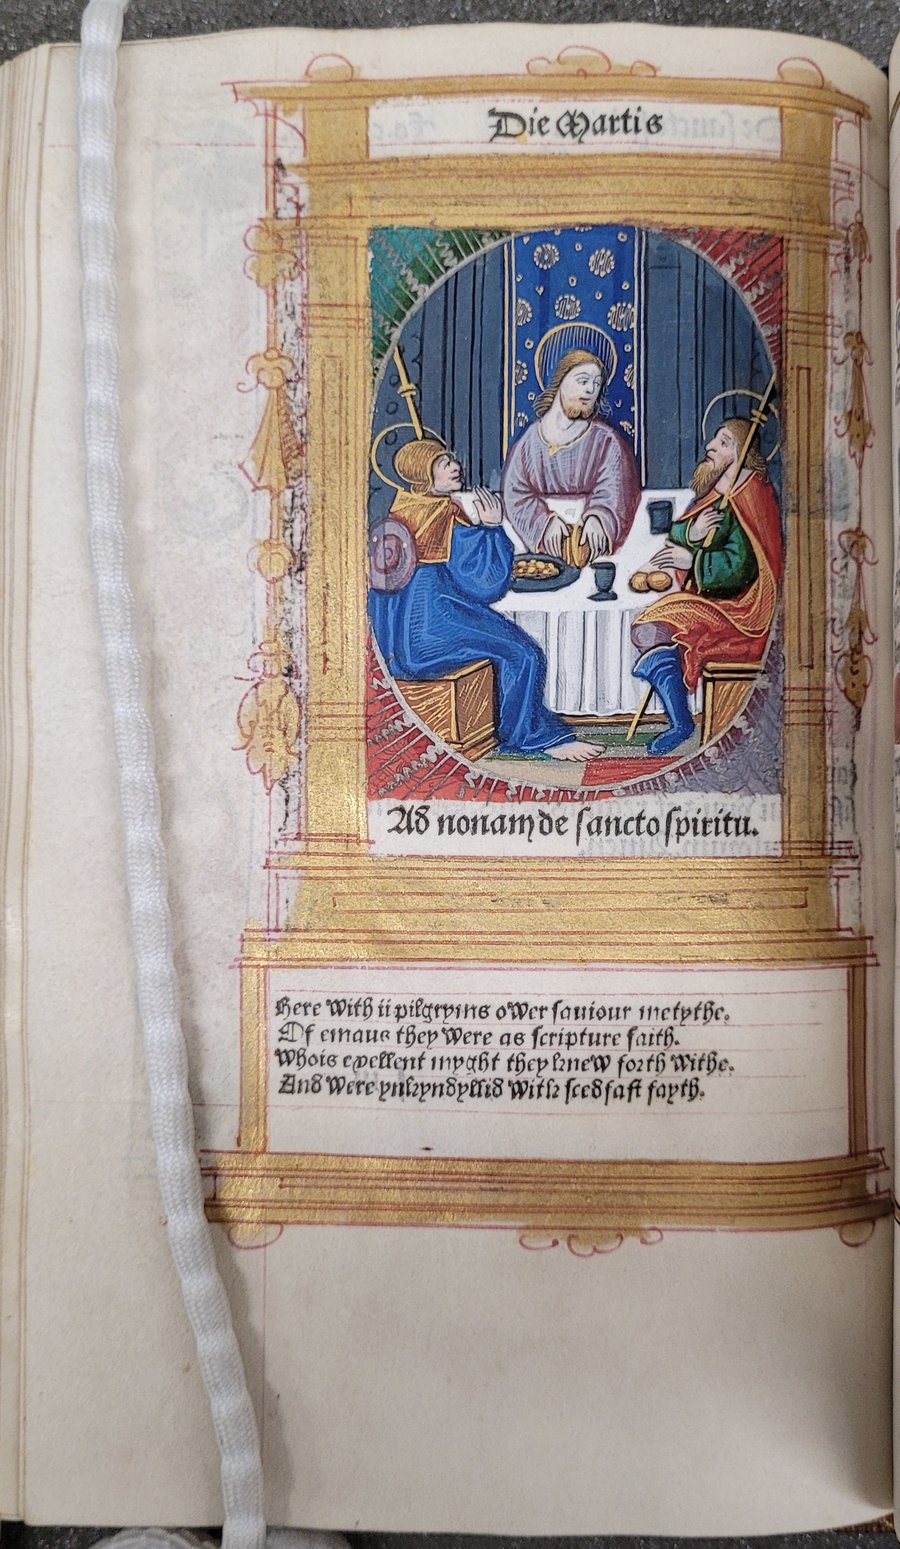 Die Martis
Ad nonam de sancto spiritu.
Here with ii pilgryms ower saviour metythe.
Of emaus they were as scripture saith.
Whois excellent myght they knew forth withe.
And were ynkyndyllid with stedfast fayth.